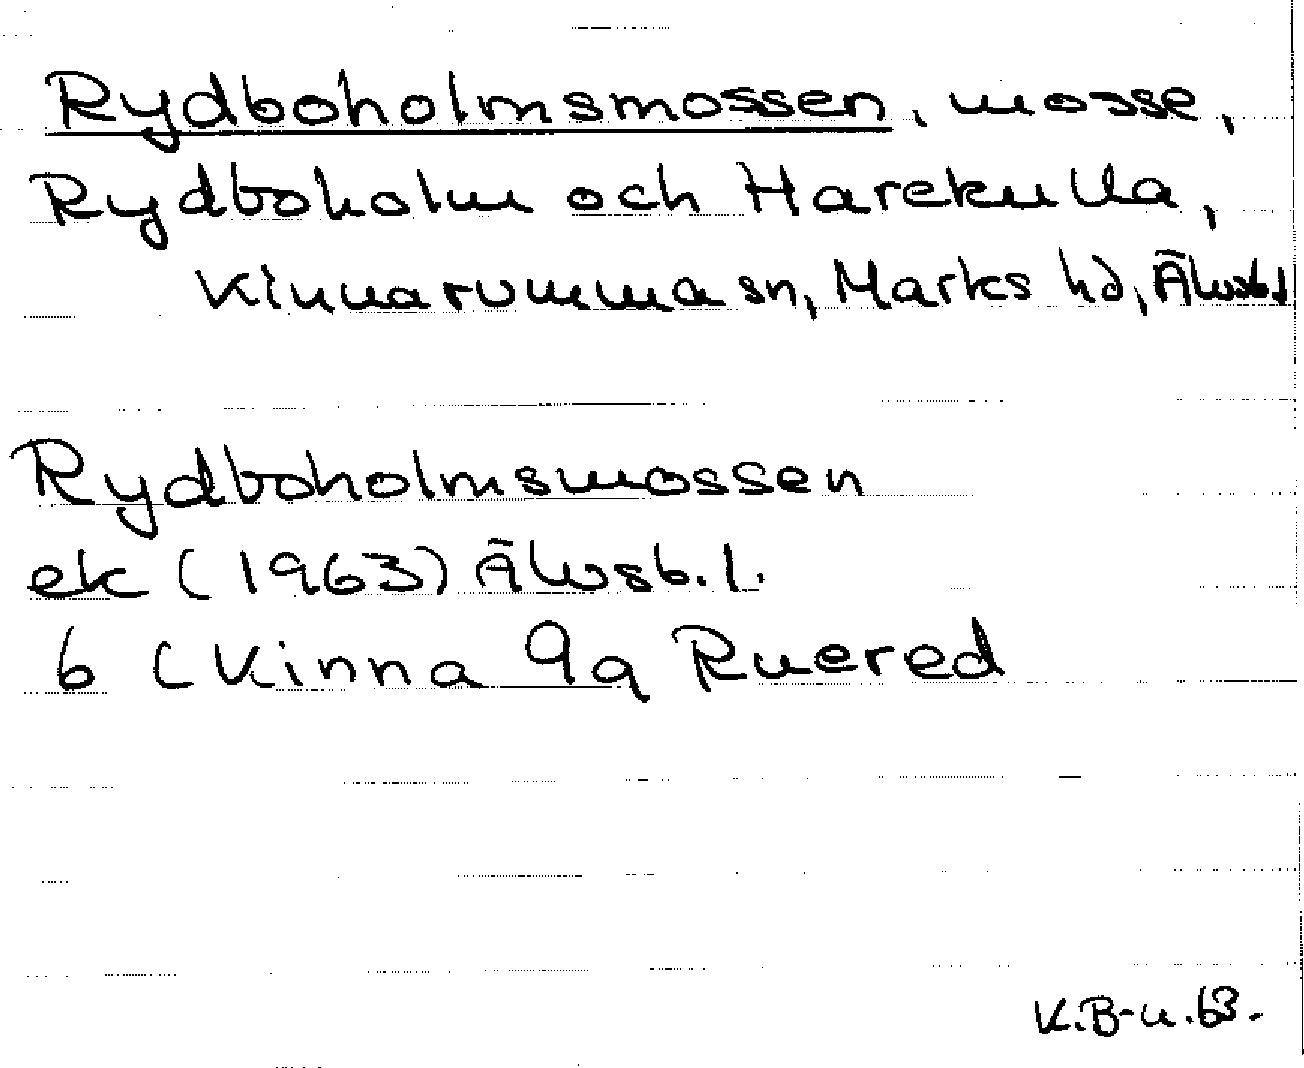 Rydboholmsmossen, mosse,
Rydboholm och Harekulla,
Kinnarumma sn, Marks hd, Älvsb.l
Rydboholmsmossen
ek (1963) Älvsb.l.
6 (Kinna 9q Ruered
K.B-n.63.